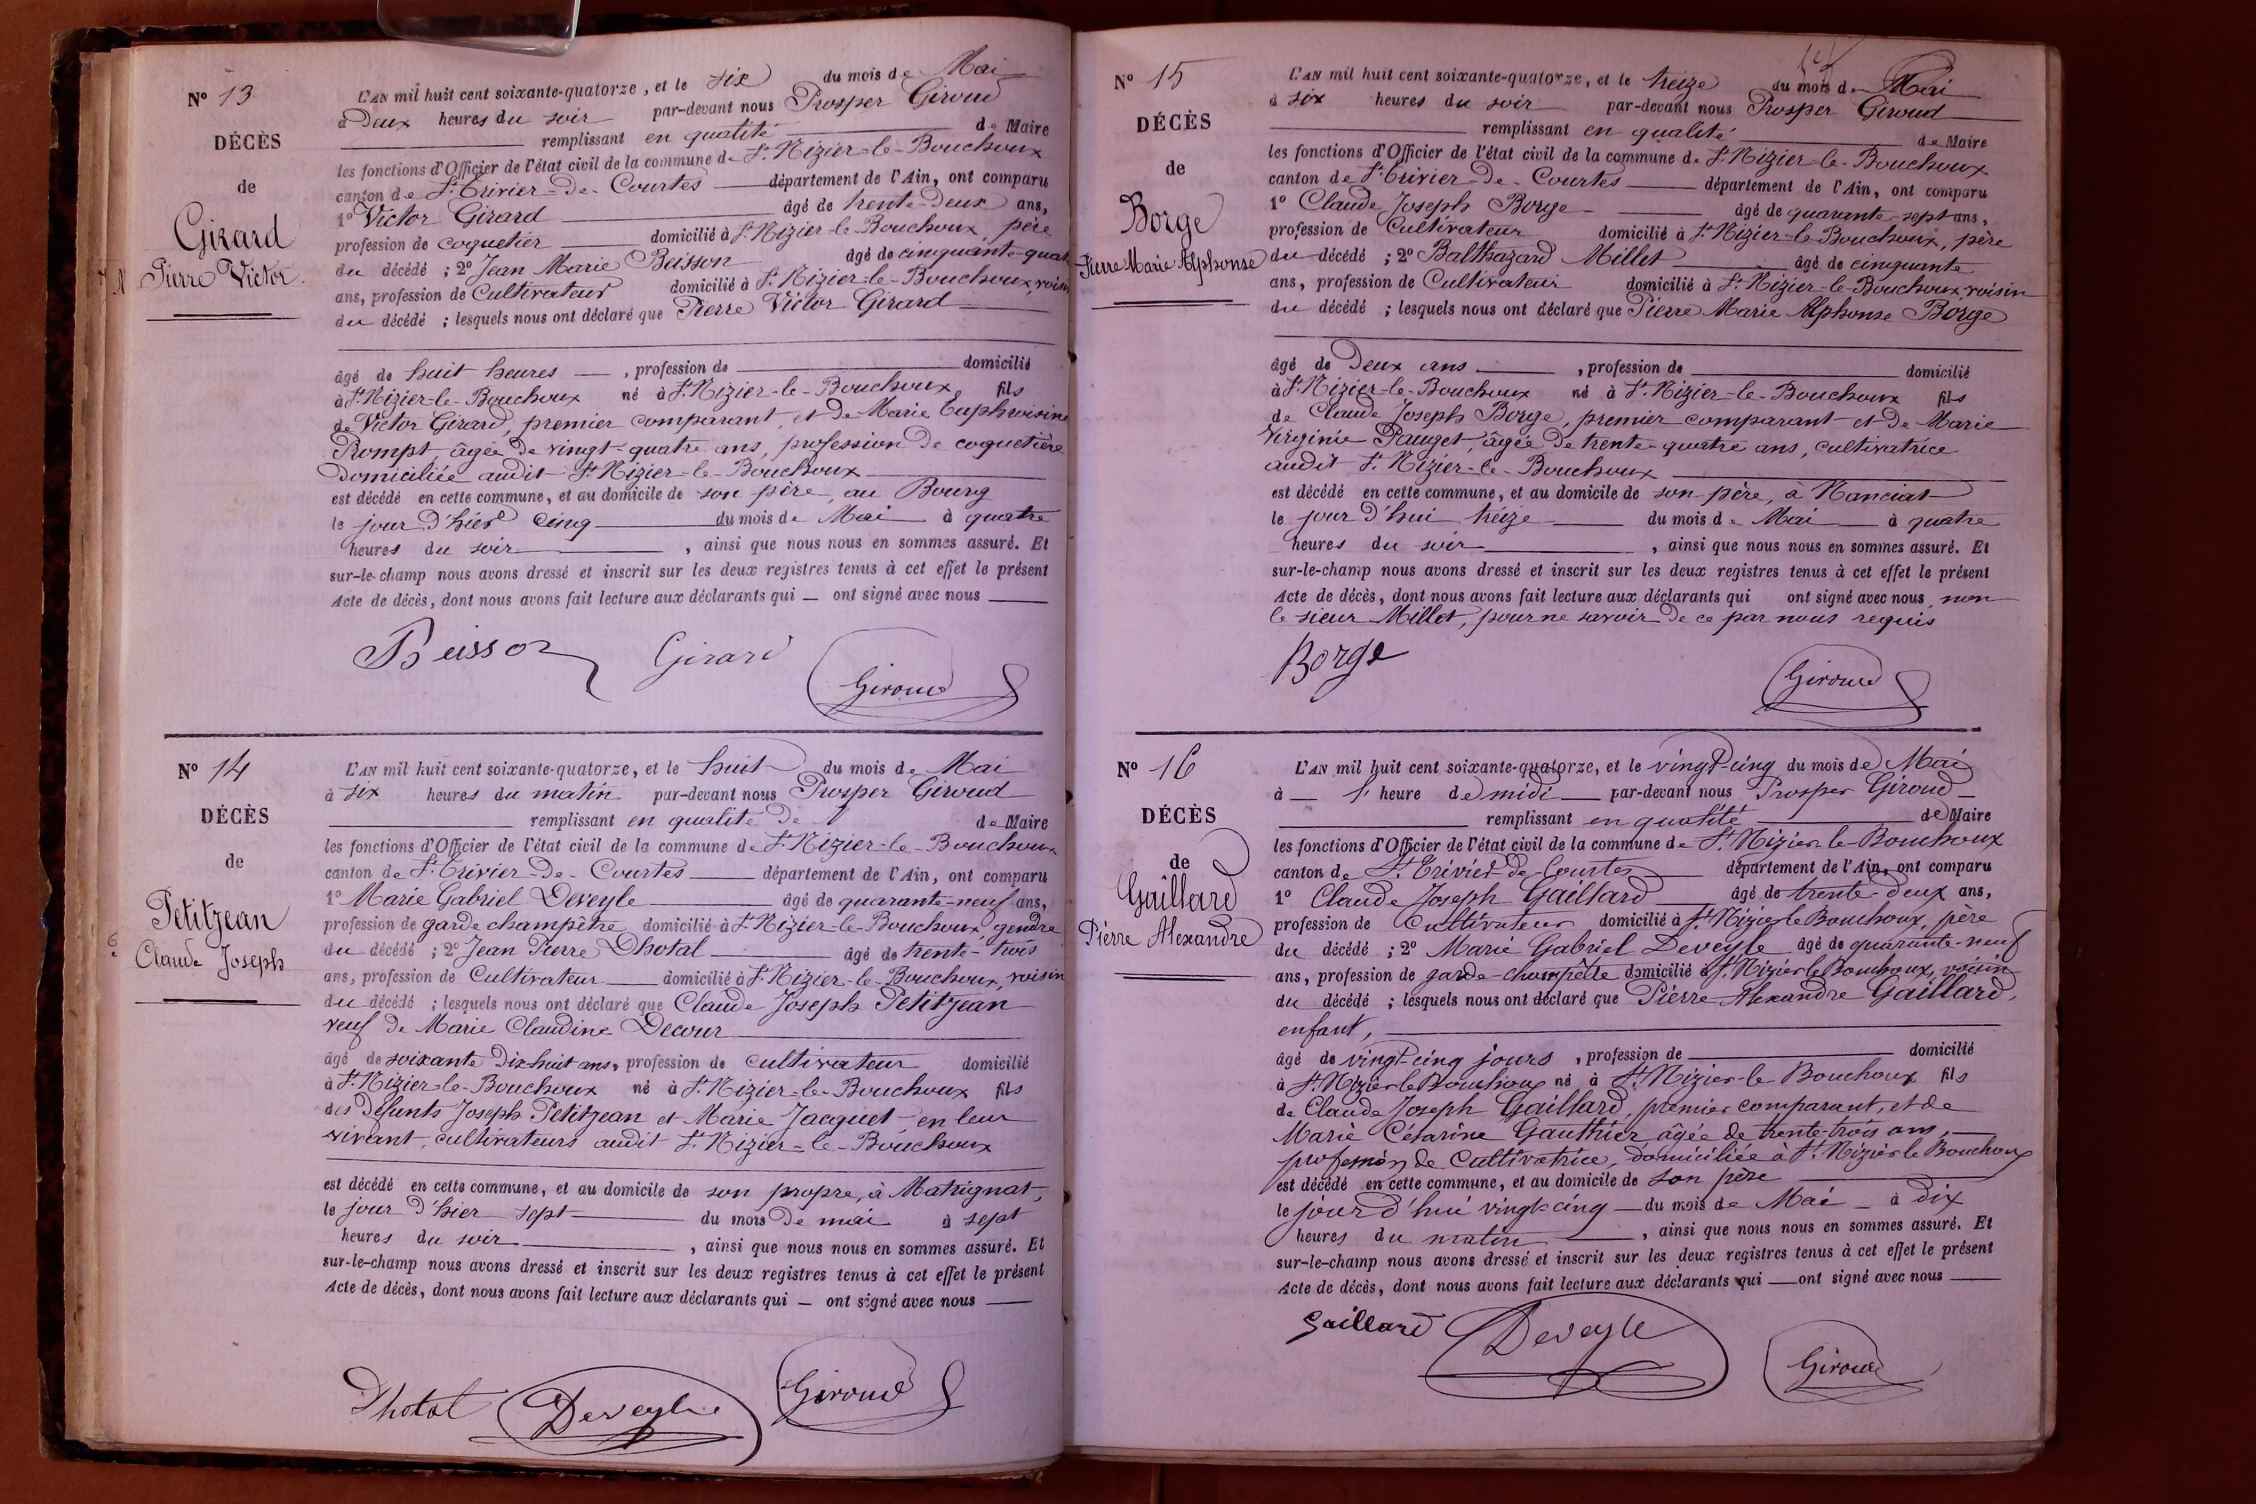 N° 13
DÉCÈS
de
Girard
Pierre Victor
L'AN mil huit cent soixante-quatorze, et le six du mois de Mai
à Deux heures du soir par-devant nous Prosper Giroud
remplissant en qualité de Maire
les fonctions d'Officier de l'état civil de la commune de St Nizier-le-Bouchoux
canton de St Trivier-de-Courtes département de l'Ain, ont comparu
1° Victor Girard âgé de trente-deux ans,
profession de coquetier domicilié à St Nizier-le-Bouchoux, père
du décédé ; 2° Jean Marie Buisson âgé de cinquante-quatre
ans, profession de Cultivateur domicilié à St Nizier-le-Bouchoux, voisin
du décédé ; lesquels nous ont déclaré que Pierre Victor Girard
âgé de huit heures , profession de domicilié
à St Nizier-le-Bouchoux né à St Nizier-le-Bouchoux fils
de Victor Girard, premier comparant, et de Marie Euphroisine
Rompt, âgée de vingt-quatre ans, profession de coquetière
Domiciliée audit St Nizier-le-Bouchoux
est décédé en cette commune, et au domicile de son père, au Bourg
le jour d'hier cinq du mois de Mai à quatre
heures du soir , ainsi que nous nous en sommes assuré. Et
sur-le-champ nous avons dressé et inscrit sur les deux registres tenus à cet effet le présent
Acte de décès, dont nous avons fait lecture aux déclarants qui — ont signé avec nous
Buisson Girard Giroud
N° 14
DÉCÈS
de
Petitjean
Claude Joseph
L'AN mil huit cent soixante-quatorze, et le huit du mois de Mai
à six heures du matin par-devant nous Prosper Giroud
remplissant en qualité de de Maire
les fonctions d'Officier de l'état civil de la commune de St Nizier-le-Bouchoux
canton de St Trivier-de-Courtes département de l'Ain, ont comparu
1° Marie Gabriel Deveyle âgé de quarante-neuf ans,
profession de garde champêtre domicilié à St Nizier-le-Bouchoux gendre
du décédé ; 2° Jean Pierre Dhotal âgé de trente-trois
ans, profession de Cultivateur domicilié à St Nizier-le-Bouchoux, voisin
du décédé ; lesquels nous ont déclaré que Claude Joseph Petitjean
veuf de Marie Claudine Decour
âgé de soixante Dix huit ans, profession de cultivateur domicilié
à St Nizier-le-Bouchoux né à St Nizier-le-Bouchoux fils
des Défunts Joseph Petitjean et Marie Jacquet, en leur
vivant, cultivateurs audit St Nizier-le-Bouchoux
est décédé en cette commune, et au domicile de son propre, à Matrignat,
le jour d'hier sept du mois De mai à sept
heures du soir , ainsi que nous nous en sommes assuré. Et
sur-le-champ nous avons dressé et inscrit sur les deux registres tenus à cet effet le présent
Acte de décès, dont nous avons fait lecture aux déclarants qui — ont signé avec nous
Dhotal Deveyle Giroud
N° 15
DÉCÈS
de
Borge
Pierre Marie Alphonse
L'AN mil huit cent soixante-quatorze, et le treize du mois de Mai
à six heures du soir par-devant nous Prosper Giroud
remplissant en qualité de Maire
les fonctions d'Officier de l'état civil de la commune de St Nizier-le-Bouchoux
canton de St Trivier-de-Courtes département de l'Ain, ont comparu
1° Claude Joseph Borge âgé de quarante-sept ans,
profession de Cultivateur domicilié à St Nizier-le-Bouchoux, père
du décédé ; 2° Balthazard Millet âgé de cinquante
ans, profession de Cultivateur domicilié à St Nizier-le-Bouchoux, voisin
du décédé ; lesquels nous ont déclaré que Pierre Marie Alphonse Borge
âgé de Deux ans , profession de domicilié
à St Nizier-le-Bouchoux né à St Nizier-le-Bouchoux fils
de Claude Joseph Borge, premier comparant et de Marie
Virginie Pauget, âgée de trente quatre ans, cultivatrice
audit St Nizier-le-Bouchoux
est décédé en cette commune, et au domicile de son père, à Nanciat
le jour d'hui treize du mois de Mai à quatre
heures du soir , ainsi que nous nous en sommes assuré. Et
sur-le-champ nous avons dressé et inscrit sur les deux registres tenus à cet effet le présent
Acte de décès, dont nous avons fait lecture aux déclarants qui ont signé avec nous, non
le sieur Millet, pour ne savoir de ce par nous requis
Borge Giroud
N° 16
DÉCÈS
de
Gaillard
Pierre Alexandre
L'AN mil huit cent soixante-quatorze, et le vingt-cinq du mois de Mai
à — 1 heure de midi — par-devant nous Prosper Giroud
remplissant en qualité de Maire
les fonctions d'Officier de l'état civil de la commune de St Nizier-le-Bouchoux
canton de St Trivier-de-Courtes département de l'Ain, ont comparu
1° Claude Joseph Gaillard âgé de trente-deux ans,
profession de Cultivateur domicilié à St Nizier le Bouchoux, père
du décédé ; 2° Marie Gabriel Deveyle âgé de quarante-neuf
ans, profession de garde-champêtre domicilié à St Nizier le Bouchoux, voisin
du décédé ; lesquels nous ont déclaré que Pierre Alexandre Gaillard,
enfant,
âgé de vingt-cinq jours , profession de domicilié
à St Nizier le Bouchoux né à St Nizier-le Bouchoux fils
de Claude Joseph Gaillard, premier comparant, et de
Marie Césarine Gauthier, âgée de trente-trois ans,
profession de Cultivatrice, domiciliée à St Nizier le Bouchoux
est décédé en cette commune, et au domicile de son père
le jour d'hui vingt-cinq — du mois de Mai — à dix
heures du matin , ainsi que nous nous en sommes assuré. Et
sur-le-champ nous avons dressé et inscrit sur les deux registres tenus à cet effet le présent
Acte de décès, dont nous avons fait lecture aux déclarants qui — ont signé avec nous
Gaillard Deveyle Giroud